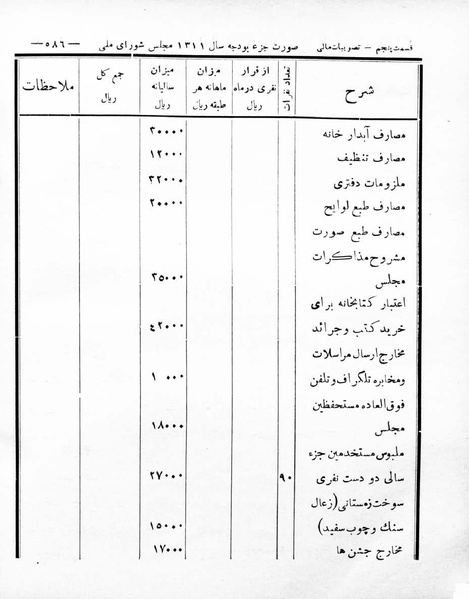 قسمت پنجم – تصویبات مالی صورت جزء بودجه سال ۱۳۱۱ مجلس شورای ملی — ۵۸۶ —
شرح تعداد نفرات از قرار نفری در ماه ریال میزان ماهانه هر طبقه ریال میزان سالیانه ریال جمع کل ریال ملاحظات
مصارف آبدار خانه ۳۰۰۰۰
مصارف تنظیف ۱۲۰۰۰
ملزومات دفتری ۳۲۰۰۰
مصارف طبع لوایح ۲۰۰۰۰
مصارف طبع صورت
مشروح مذاکرات
مجلس ۳۵۰۰۰
اعتبار کتابخانه برای
خرید کتب و جرائد ۴۲۰۰۰
مخارج ارسال مراسلات
ومخابره تلگراف و تلفن ۱۰۰۰
فوق‌العاده مستحفظین
مجلس ۱۸۰۰۰
ملبوس مستخدمین جزء
سالی دو دست نفری ۹۰ ۲۷۰۰۰
سوخت زمستانی (زغال
سنگ وچوب سفید) ۱۵۰۰۰
مخارج جشن ها ۱۷۰۰۰